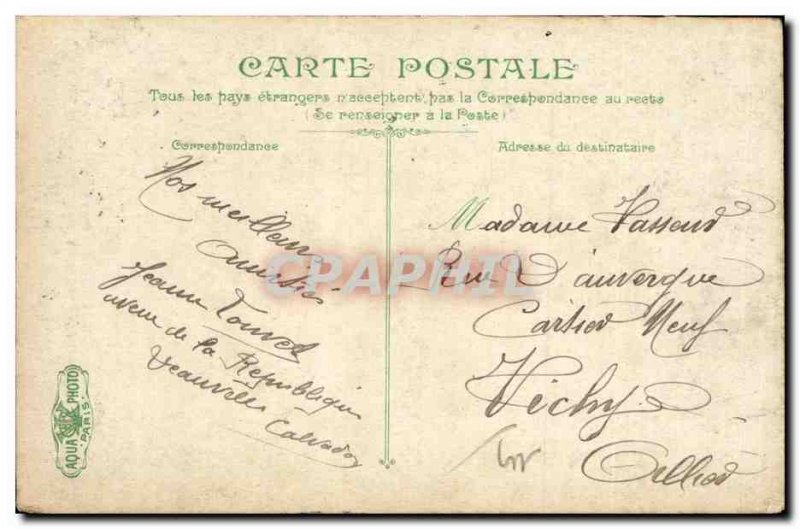 CARTE POSTALE
Tous les pays étrangers n'acceptent pas la Correspondance au recto
(Se renseigner à la Poste)
Correspondance
Adresse du destinataire
Nos meilleurs
amitiés
Jeanne
avenue de la République
Deauville Calvados
Madame
Rue D'auvergne
Cartier Neuf
Vichy
Allier
CPAPHIL
AQUA PHOTO
PARIS